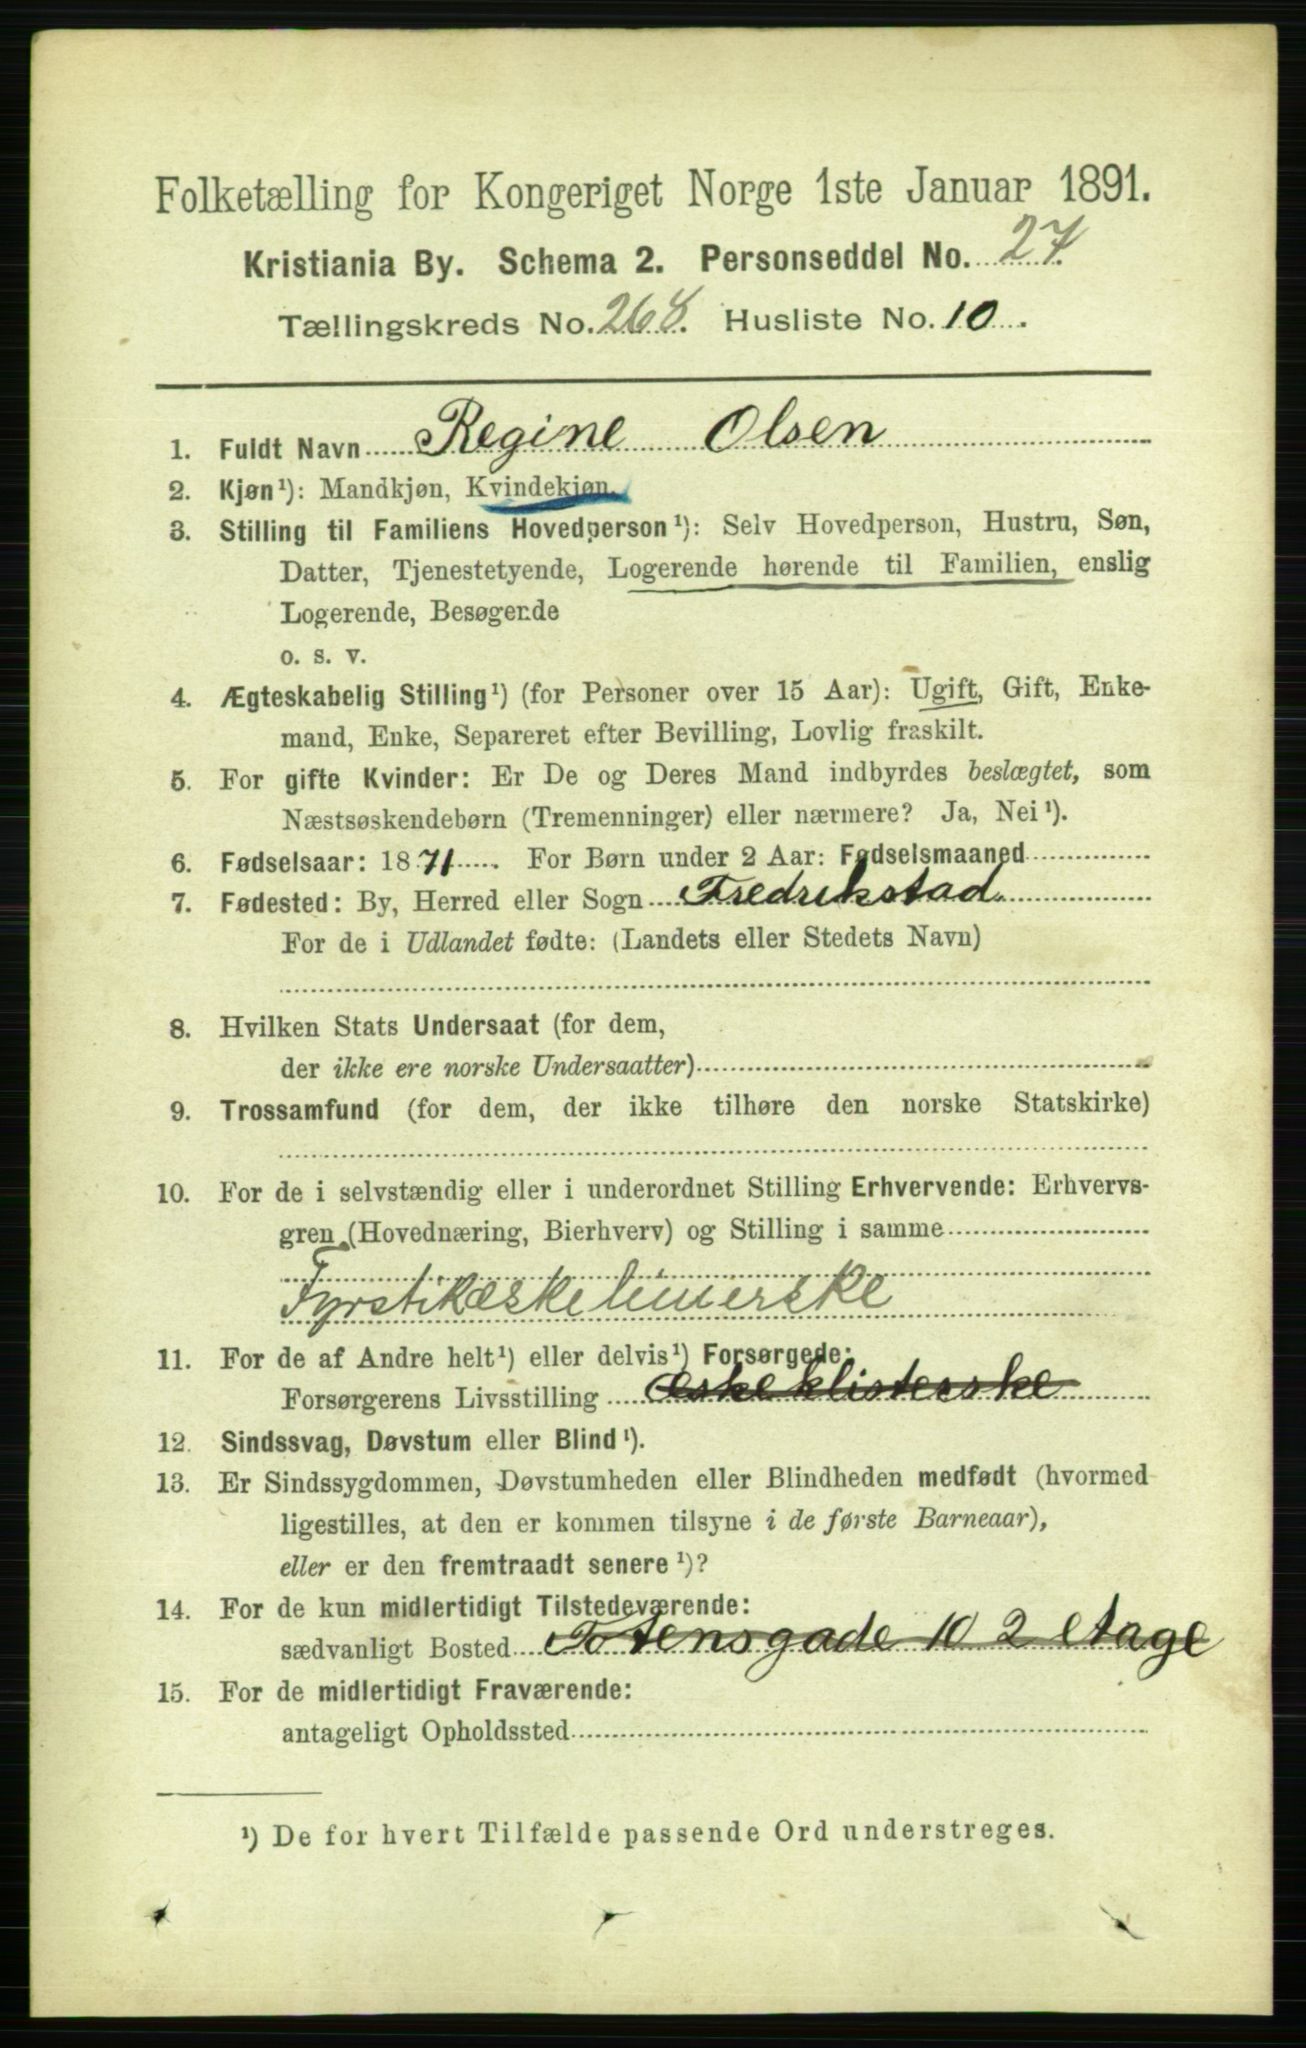 Folketælling for Kongeriget Norge 1ste Januar 1891.
Kristiania By. Schema 2. Personseddel No. 27
Tællingskreds No. 268. Husliste No. 10.
1. Fuldt Navn Regine Olsen
2. Kjøn¹): Mandkjøn, Kvindekjøn.
3. Stilling til Familiens Hovedperson¹): Selv Hovedperson, Hustru, Søn,
Datter, Tjenestetyende, Logerende hørende til Familien, enslig
Logerende, Besøgende
o. s. v.
4. Ægteskabelig Stilling¹) (for Personer over 15 Aar): Ugift, Gift, Enke-
mand, Enke, Separeret efter Bevilling, Lovlig fraskilt.
5. For gifte Kvinder: Er De og Deres Mand indbyrdes beslægtet, som
Næstsøskendebørn (Tremenninger) eller nærmere? Ja, Nei¹).
6. Fødselsaar: 1871. For Børn under 2 Aar: Fødselsmaaned
7. Fødested: By, Herred eller Sogn Fredrikstad.
For de i Udlandet fødte: (Landets eller Stedets Navn)
8. Hvilken Stats Undersaat (for dem,
der ikke ere norske Undersaatter)
9. Trossamfund (for dem, der ikke tilhøre den norske Statskirke)
10. For de i selvstændig eller i underordnet Stilling Erhvervende: Erhvervs-
gren (Hovednæring, Bierhverv) og Stilling i samme
Fyrstikæskelimerske
11. For de af Andre helt¹) eller delvis¹) Forsørgede:
Forsørgerens Livsstilling æskeklisterske
12. Sindssvag, Døvstum eller Blind¹).
13. Er Sindssygdommen, Døvstumheden eller Blindheden medfødt (hvormed
ligestilles, at den er kommen tilsyne i de første Barneaar),
eller er den fremtraadt senere¹)?
14. For de kun midlertidigt Tilstedeværende:
sædvanligt Bosted Totensgade 10 2 etage
15. For de midlertidigt Fraværende:
antageligt Opholdssted
¹) De for hvert Tilfælde passende Ord understreges.